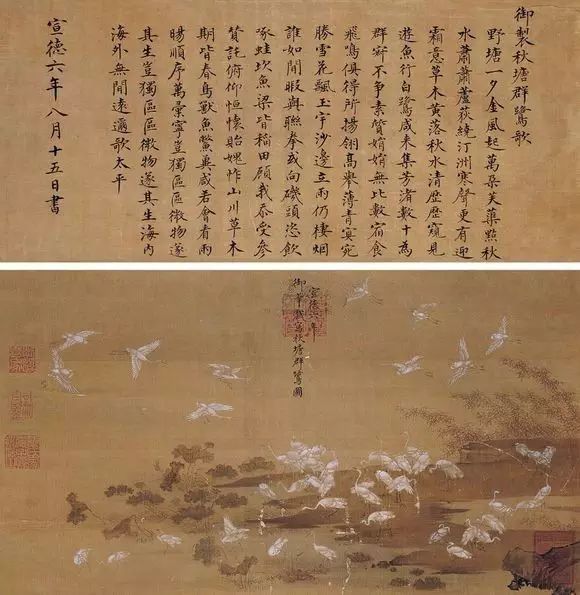 御製秋塘群鷺歌
野塘一夕金風起萬朶芙蕖點秋
水蕭蕭蘆荻繞汀洲寒聲更有迎
霜意草木黃落秋水清歷歷窺見
遊魚行白鷺咸来集芳渚數十為
群寂不爭素質娟娟無比數宿食
飛鳴俱得所揚翎高舉薄青冥宛
勝雪花飄玉宇沙邊立雨仍棲烟
誰如閒暇與聯拳或向磯頭恣飲
啄蛙坎魚梁皆稻田顧我忝受參
贊託俯仰恒懷貽媿怍山川草木
期皆春鳥獸魚鱉冀咸若會看雨
暘順序萬彙寧豈獨區區微物遂
其生豈獨區區微物遂其生海内
海外無間遠邇歌太平
宣德六年八月十五日書
宣德六年
御筆戲寫秋塘群鷺圖